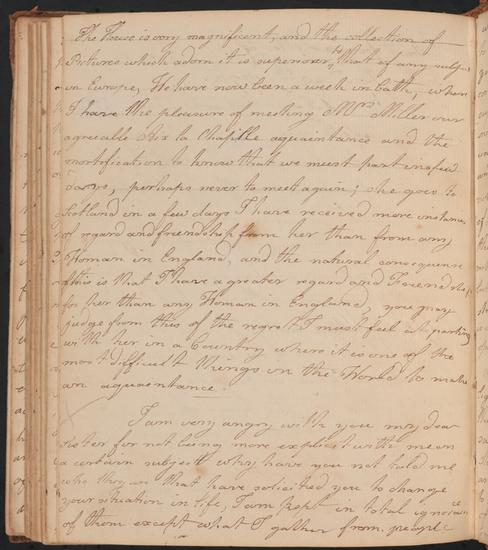 The House is very magnificent, and the collection of
Pictures which adorn it is superiour to that of any subject
in Europe, We have now been a week in Bath, when
I have the pleasure of meeting Mrs. Miller our
agreeable Aix la Chapelle aquaintance and the
mortification to know that we must part in a few
days, perhaps never to meet again; she goes to
Scotland in a few days I have received more instances
of regard and friendship from her than from any
Woman in England, and the natural consequence
of this is that I have a greater regard and Friendship
for her than any Woman in England, you may
judge from this of the regret I must feel at parting
with her in a Country where it is one of the
most difficult things in the World to make
an aquaintance.
I am very angry with you my dear
Sister for not being more explicit with me on
a certain subject why have you not told me
who they are that have solicited you to change
your situation in life, I am kept in total ignorance
of them except what I gather from people